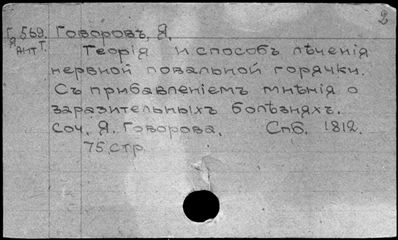 Г.569. Говоровъ, Я. 2
Я
АНТ Т. Теорія и способъ лѣченія
нервной повальной горячки.
Съ прибавленіемъ мнѣнія о
заразительныхъ болѣзняхъ.
Соч. Я. Говорова. Спб. 1812.
75 стр